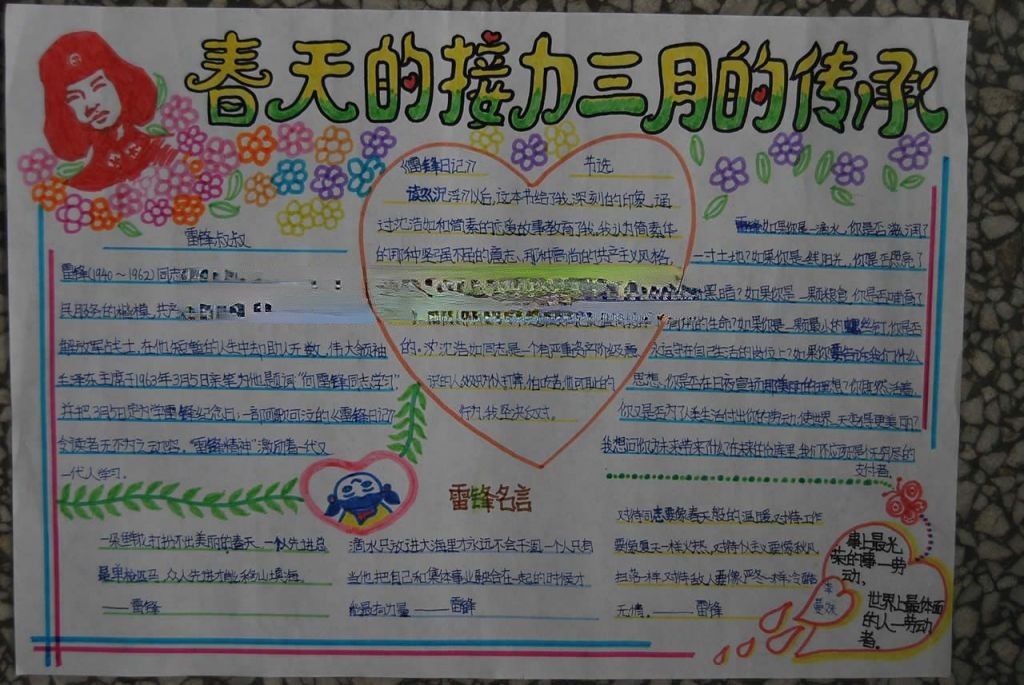 春天的接力三月的传承
雷锋叔叔
雷锋(1940～1962)同志
民服务的楷模,共产
解放军战士,在他短暂的人生中却助人无数,伟大领袖
毛泽东主席于1963年3月5日亲笔为他题词“向雷锋同志学习”
并把3月5日定为学雷锋纪念日,一部可歌可泣的《雷锋日记》
令读者无不为之动容。“雷锋精神”激励着一代又
一代人学习。
《雷锋日记》 节选
读《沉浮》以后,这本书给了我深刻的的印象,通
过沈浩如和简素的恋爱故事教育了我,我认为简素华
的那种坚强不屈的意志、那种高尚的共产主义风格,
的,对沈浩如同志是一个有严重资产阶级意
行为,我坚决反对。
如果你是一滴水,你是否滋润了
一寸土地?如果你是一线阳光,你是否照亮了
黑暗?如果你是一颗粮食,你是否哺育了
的生命?如果你是一颗最小的螺丝钉,你是否
永远守在自己生活的岗位上?如果你要告诉我们什么
思想,你是否在日夜宣扬那最美的理想?你既然活着,
你又是否为了人类生活付出你的劳动,使世界一天天变得更美丽?
我想问你,为未来带来什么?在生活的仓库里,我们不应该是个无穷尽的
支付者。
雷锋名言
一朵鲜花打扮不出美丽的春天,一个人先进总
是单枪匹马,众人先进才能移山填海。
——雷锋
滴水只有放进大海里才永远不会干涸,一个人只有
当他把自己和集体事业融合在一起的时候才
能最有力量 ——雷锋
对待同志要像春天般的温暖,对待工作
要像夏天一样火热,对待个人主义要像秋风
扫落叶一样,对待敌人要像严冬一样冷酷
无情。——雷锋
事上最光
荣的事—劳
动,
世界上最体面
的人—劳动
者。